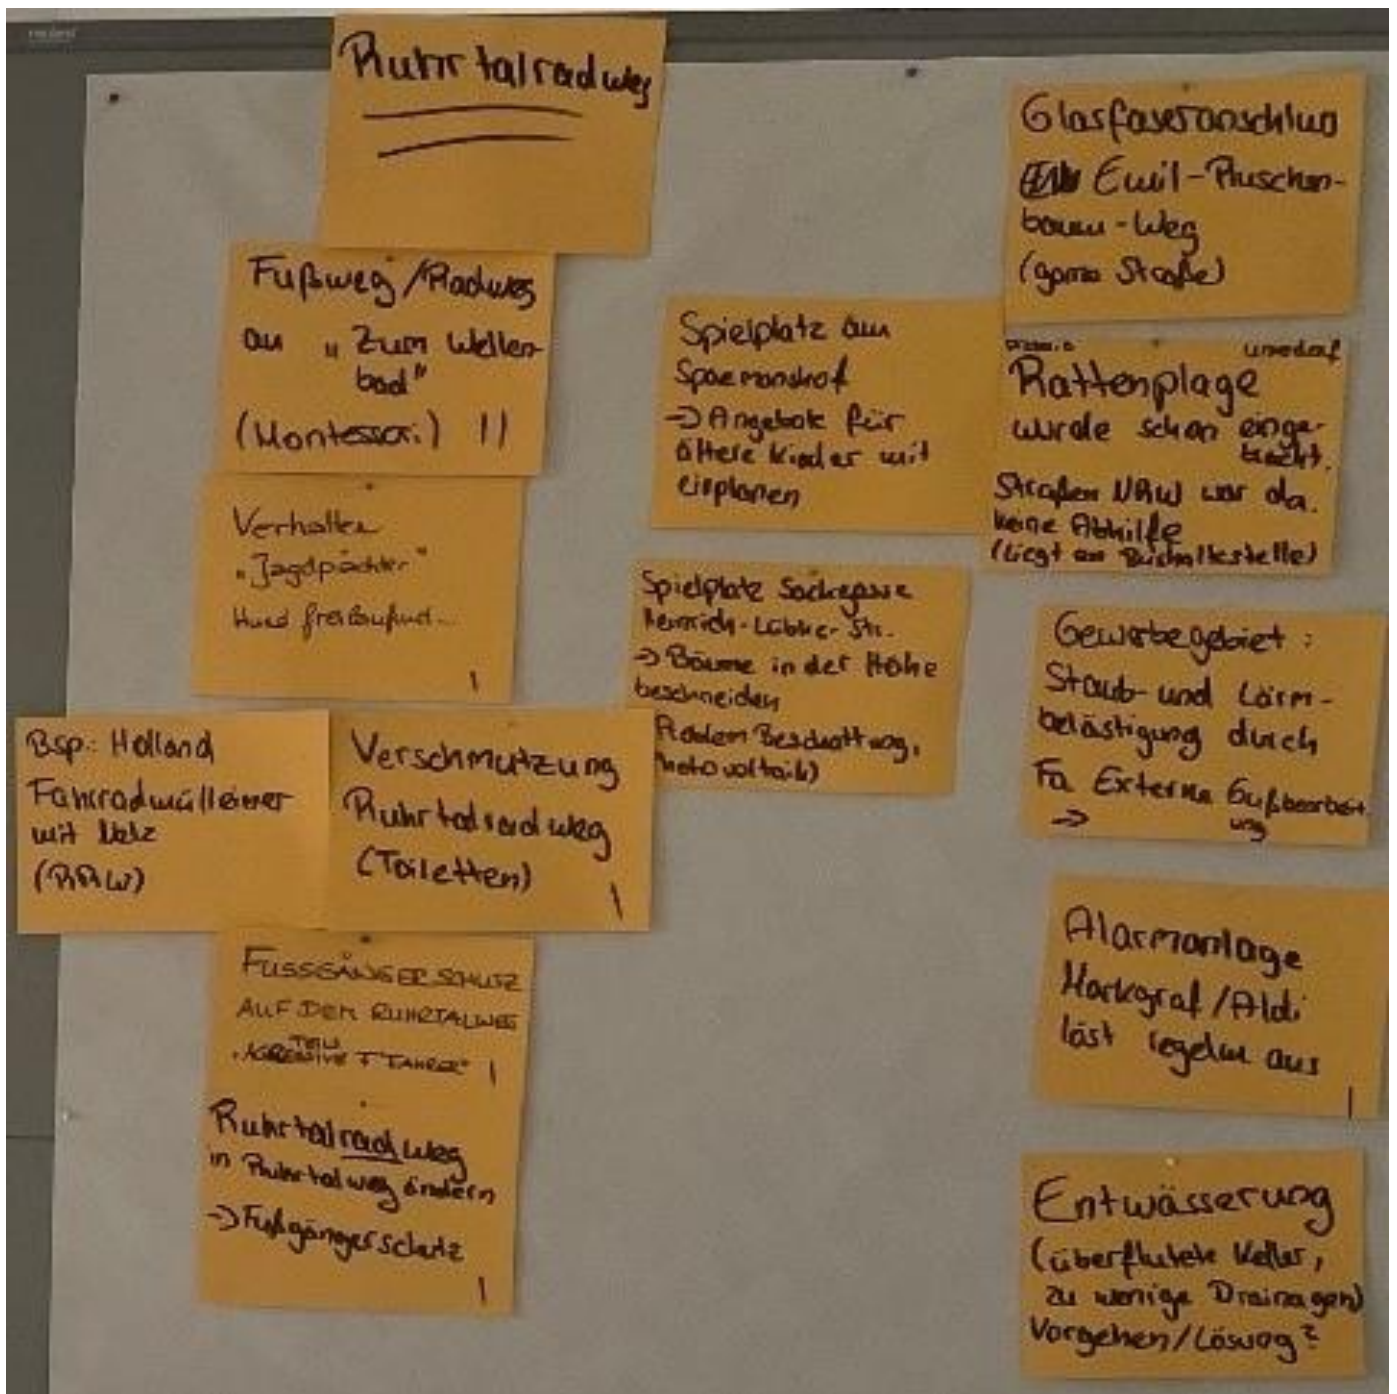 Ruhrtalradweg
Fußweg/Radweg
an "Zum Wellen-
bad"
(Montessori) ||
Verhalten
"Jagdpächter"
Hund freilaufend...
|
Bsp.: Holland
Fahrradmülleimer
mit Netz
(RRW)
Verschmutzung
Ruhrtalradweg
(Toiletten)
|
FUSSGÄNGERSCHUTZ
AUF DEM RUHRTALWEG
TEILS
|
Ruhrtalradweg
in Ruhrtalweg ändern
→ Fußgängerschutz
|
Spielplatz am
Spaemanshof
→ Angebote für
ältere Kinder mit
einplanen
Spielplatz Sackgasse
Heinrich-Lübke-Str.
→ Bäume in der Höhe
beschneiden
Problem Beschattung,
Photovoltaik)
Glasfaseranschluß
Emil-Ruschen-
baum-Weg
(ganze Straße)
Rattenplage
wurde schon einge-
bracht.
Straßen NRW war da.
keine Abhilfe
(Liegt an Bushaltestelle)
Gewerbegebiet:
Staub- und Lärm-
belästigung durch
Fa Externe Gußbearbeit
ung
→
Alarmanlage
Markgraf/Aldi
löst regelm aus
|
Entwässerung
(überflutete Keller,
zu wenige Drainagen)
Vorgehen/Lösung?